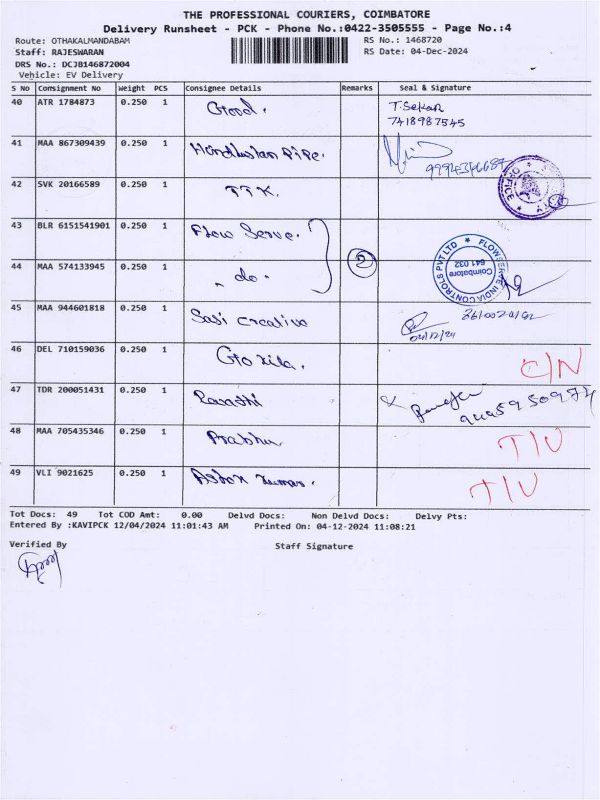 THE PROFESSIONAL COURIERS, COIMBATORE
Delivery Runsheet - PCK - Phone No.:0422-3505555 - Page No.:4
Route: OTHAKALMANDABAM RS No.: 1468720
Staff: RAJESWARAN RS Date: 04-Dec-2024
DRS No.: DCJB146872004
Vehicle: EV Delivery
S No Consignment No Weight PCS Consignee Details Remarks Seal & Signature
40 ATR 1784873 0.250 1 Good. T. Sekar
7418987545
41 MAA 867309439 0.250 1 Hindustan Pipe.
42 SVK 20166589 0.250 1 TTK. OFFICE
43 BLR 6151541901 0.250 1 Flow Serve.
2 FLOWSERVE INDIA CONTROLS PVT LTD
Coimbatore
641 032
44 MAA 574133945 0.250 1 do.
45 MAA 944601818 0.250 1 Sasi Creative
04/12/24
46 DEL 710159036 0.250 1 C/N
47 TDR 200051431 0.250 1
48 MAA 705435346 0.250 1 Prabhu T/N
49 VLI 9021625 0.250 1 Ashok Kumar. T/N
Tot Docs: 49 Tot COD Amt: 0.00 Delvd Docs: Non Delvd Docs: Delvy Pts:
Entered By :KAVIPCK 12/04/2024 11:01:43 AM Printed On: 04-12-2024 11:08:21
Verified By Staff Signature